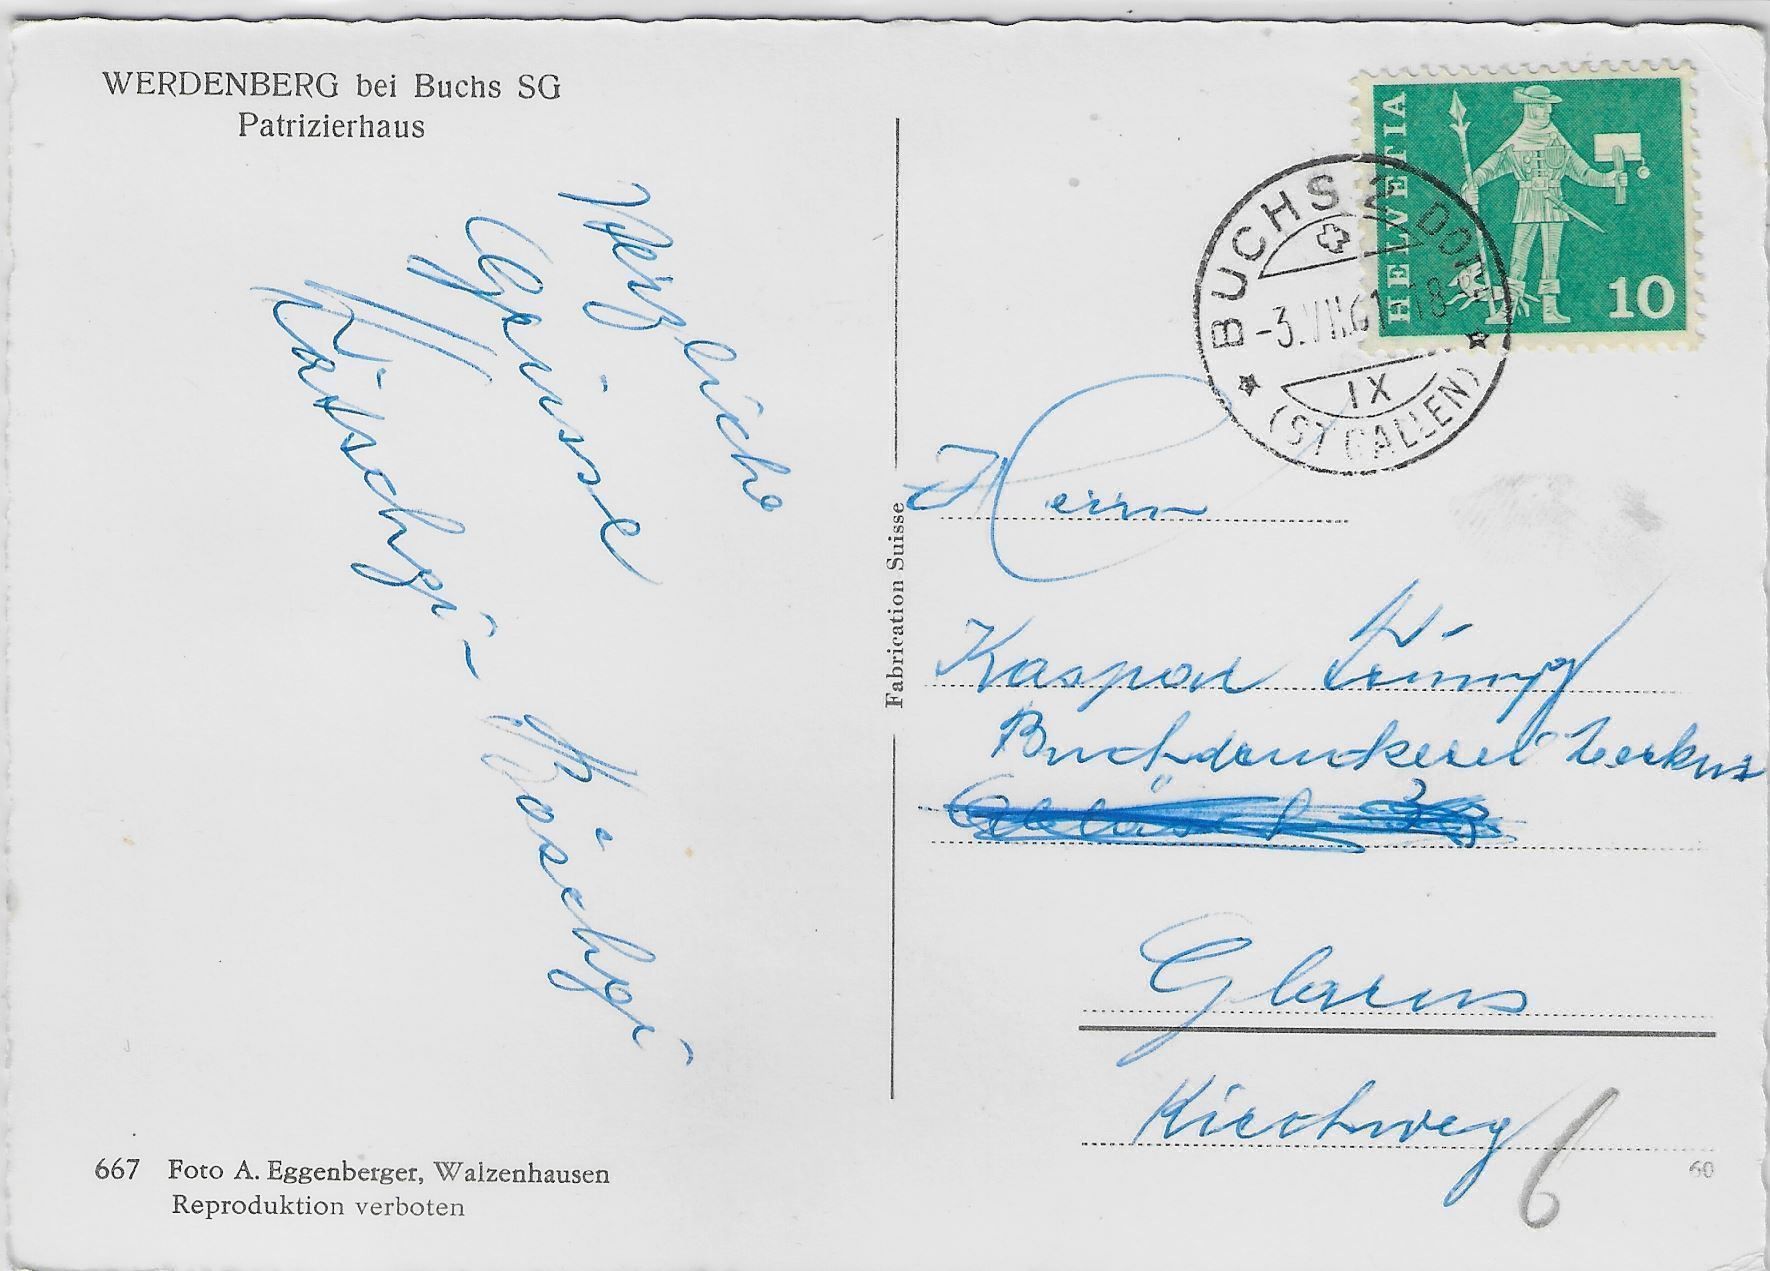 WERDENBERG bei Buchs SG
Patrizierhaus
Herzliche
Grüsse
Böschgi
667 Foto A. Eggenberger, Walzenhausen
Reproduktion verboten
Fabrication Suisse
HELVETIA
10
BUCHS 2 DORF
-3.VII.61-18
IX
(ST GALLEN)
Herrn
Kaspar Trümpy
Buchdruckerei
Glarus
Kirchweg
6
60